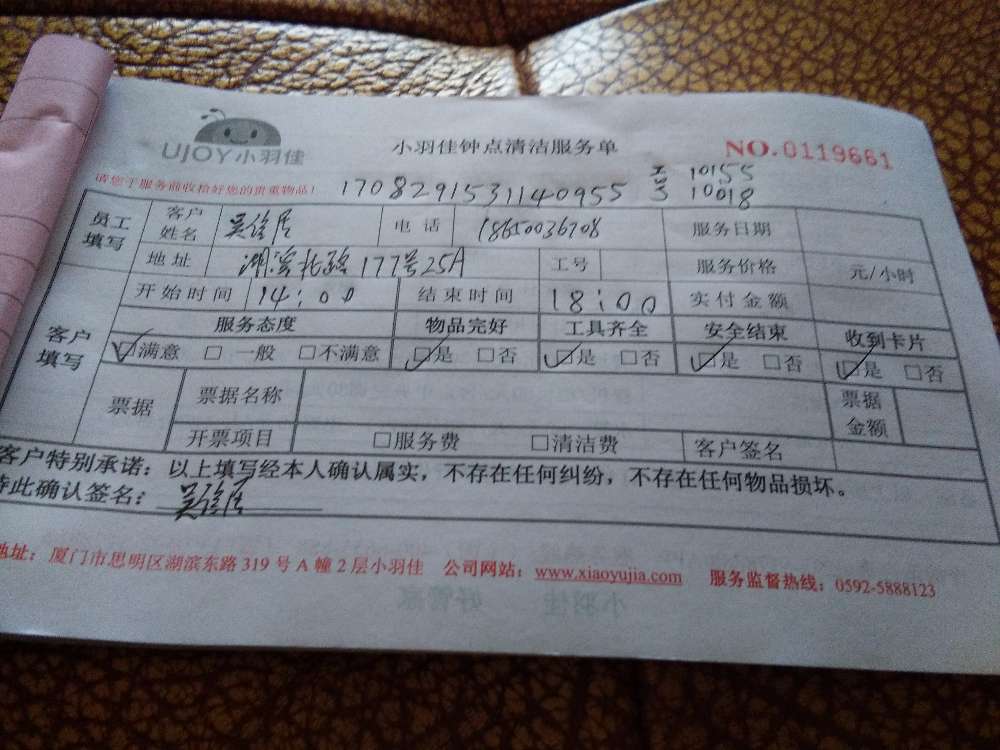 UJOY小羽佳
小羽佳钟点清洁服务单
NO.0119661
请您于服务前收拾好您的贵重物品!
1708291531140955
工号 10155
10018
员工填写
客户姓名 吴 电话 18650036708 服务日期
地址 湖滨北路177号25A 工号 服务价格 元/小时
客户填写
开始时间 14:00 结束时间 18:00 实付金额
服务态度 物品完好 工具齐全 安全结束 收到卡片
☑满意 □ 一般 □不满意 ☑是 □否 ☑是 □否 ☑是 □否 ☑是 □否
票据 票据名称 票据金额
开票项目 □服务费 □清洁费 客户签名
客户特别承诺：以上填写经本人确认属实，不存在任何纠纷，不存在任何物品损坏。
特此确认签名：吴
地址：厦门市思明区湖滨东路 319 号 A 幢 2 层小羽佳 公司网站：www.xiaoyujia.com 服务监督热线：0592-5888123